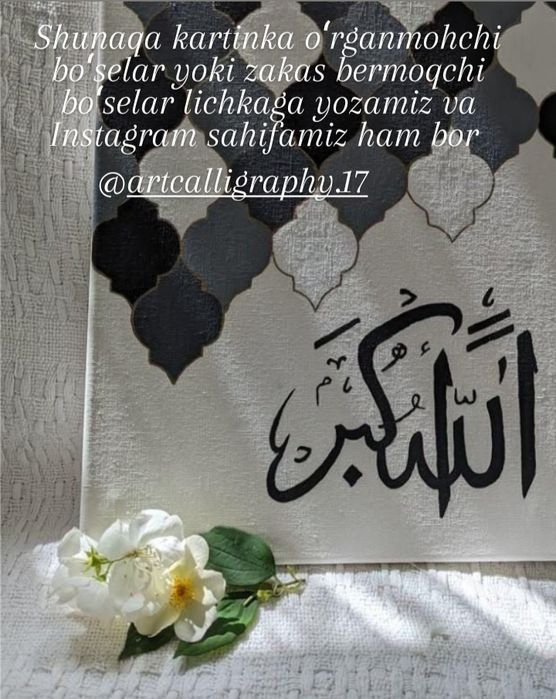 Shunaqa kartinka oʻrganmohchi
boʻselar yoki zakas bermoqchi
boʻselar lichkaga yozamiz va
Instagram sahifamiz ham bor
@artcalligraphy.17
الله أكبر